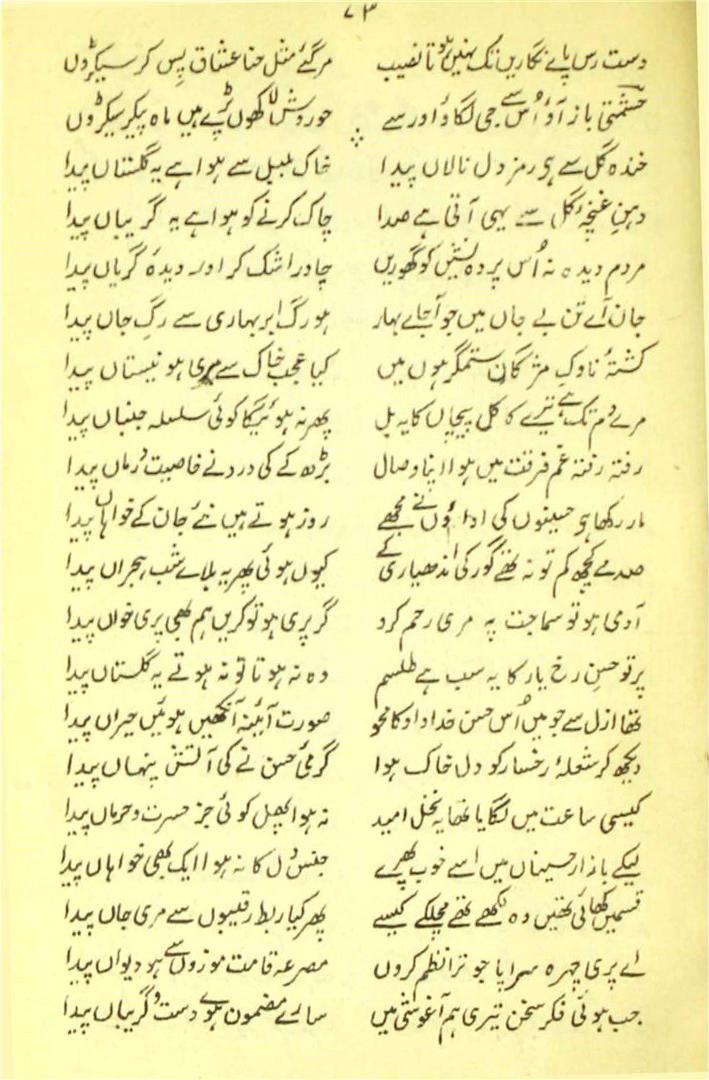 ۷۳
دست رس پاے نگاریں تک نہیں ہوتا نصیب مر گئے مثل حنا عشاق پس کر سیکڑوں
حشمتی باز آؤ اُس سے جی لگاؤ اور سے حور وش لاکھوں پڑے ہیں ماہ پیکر سیکڑوں
خندہ گل سے ہی رمز دل نالاں پیدا خاک بلبل سے ہوا ہے یہ گلستاں پیدا
دہن غنچۂ گل سے یہی آتی ہے صدا چاک کرنے کو ہوا ہے یہ گریباں پیدا
مردم دیدہ نہ اُس پردہ نشیں کو گھوریں چادر اشک کر اور دیدۂ گریاں پیدا
جان آے تن بے جاں میں جو آ جاے بہار ہو رگ ابر بہاری سے رگ جاں پیدا
کشتۂ ناوک مژگان ستمگر ہوں میں کیا عجب خاک سے مری ہو نیستاں پیدا
مرے دم تک ہے تیرے کاکل پیچاں کا یہ بل پھر نہ ہوئیگا کوئی سلسلہ جنباں پیدا
رفتہ رفتہ غم فرقت میں ہوا اپنا وصال بڑھ کے کی درد نے خاصیت درماں پیدا
مار رکھا ہی حسینوں کی اداؤں نے مجھے روز ہوتے ہیں نئے جان کے خواہاں پیدا
صدمے کچھ کم تو نہ تھے گور کی اندھیاری کے کیوں ہوئی پھر یہ بلاے شب ہجراں پیدا
آدمی ہو تو سماجت پہ مری رحم کرو گر پری ہو تو کریں ہم بھی پری خواں پیدا
پرتو حسن رخ یار کا یہ سب ہے طلسم وہ نہ ہوتا تو نہ ہوتے یہ گلستاں پیدا
تھا ازل سے جو میں اُس حسن خداداد کا محو صورت آئینہ آنکھیں ہوئیں حیراں پیدا
دیکھ کر شعلۂ رخسار کو دل خاک ہوا گرمئ حسن نے کی آتش پنہاں پیدا
کیسی ساعت میں لگایا تھا یہ نخل امید نہ ہوا پھل کوئی جز حسرت و حرماں پیدا
لیکے بازار حسیناں میں اسے خوب پھرے جنس دل کا نہ ہوا ایک بھی خواہاں پیدا
قسمیں کھائی تھیں وہ لکھے تھے مچلکے کیسے پھر کیا ربط رقیبوں سے مری جاں پیدا
اے پری چہرہ سراپا جو ترا نظم کروں مصرعہ قامت موزوں سے ہو دیواں پیدا
جب ہوئی فکر سخن تیری ہم آغوشی میں سارے مضمون ہوے دست و گریباں پیدا